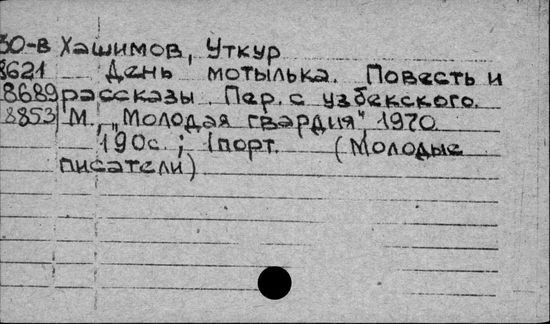 30-в Хашимов, Уткур
8621 День мотылька. Повесть и
8689 рассказы. Пер. с узбекского.
8853 М., "Молодая гвардия", 1970
190с.; 1порт. (Молодые
писатели)